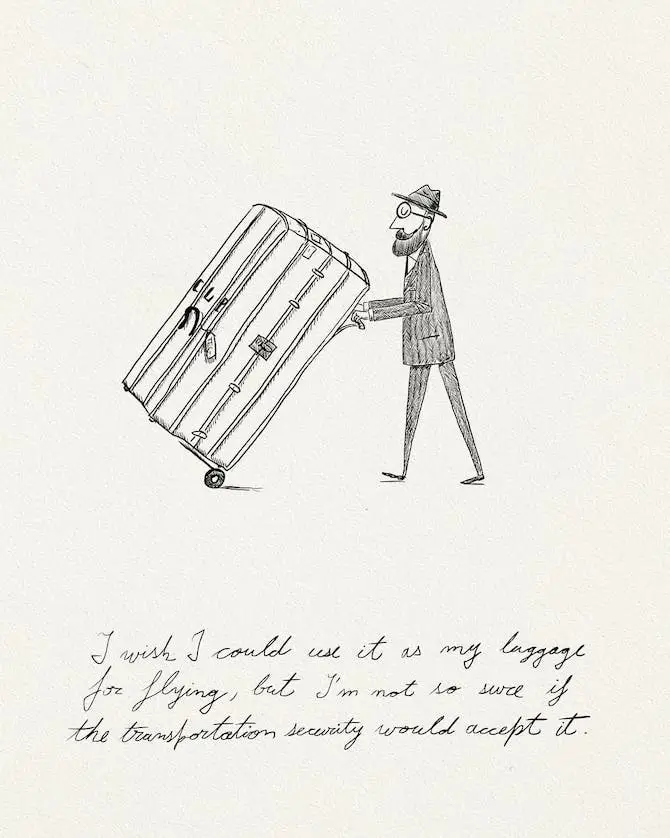 I wish I could use it as my luggage
for flying, but I'm not so sure if
the transportation security would accept it.